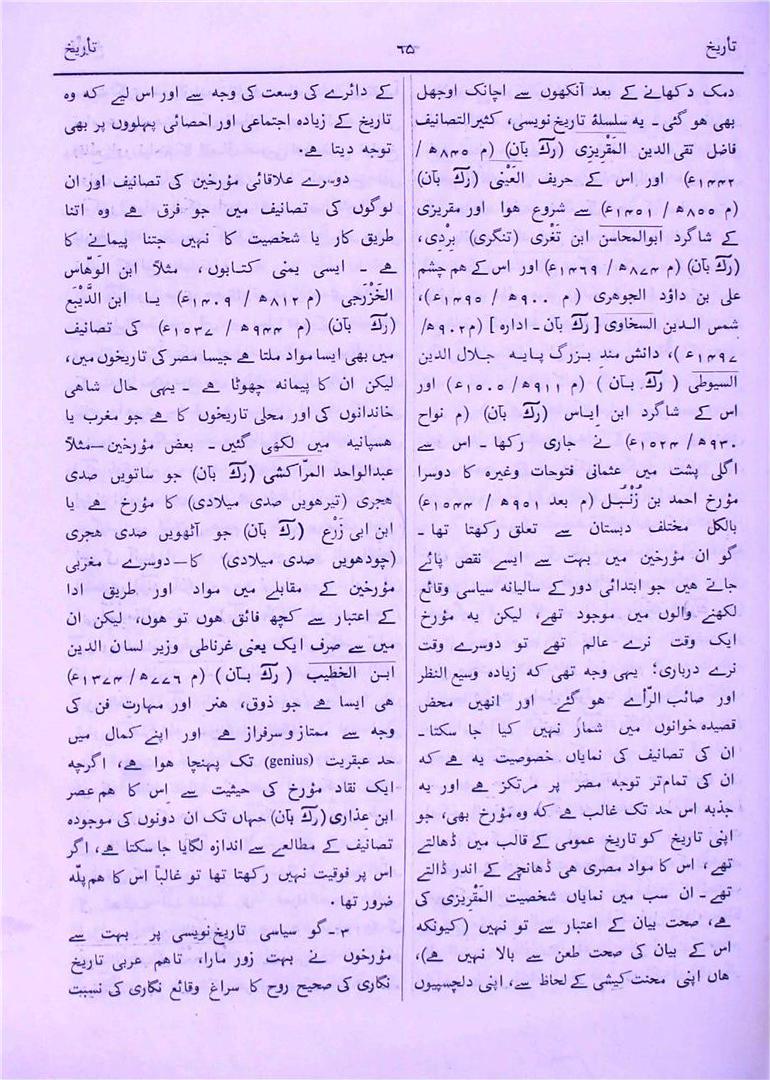 تأریخ ۶۵ تأریخ
دمک دکھانے کے بعد آنکھوں سے اچانک اوجھل
بھی ہو گئی۔ یہ سلسلۂ تاریخ نویسی، کثیرالتصانیف
فاضل تقی الدین المَقْریزی (رَکَ بآن) (م ۸۴۵ھ /
۱۴۴۲ء) اور اس کے حریف العَیْنی (رَکَ بآن)
(م ۸۵۵ھ / ۱۴۵۱ء) سے شروع ہوا اور مقریزی
کے شاگرد ابوالمحاسن ابن تَغْری (تنگری) بِرْدی،
(رَکَ بآن) (م ۸۷۴ھ / ۱۴۶۹ء) اور اس کے ہم چشم
علی بن داؤد الجوہری (م ۹۰۰ھ / ۱۴۹۵ء)،
شمس الدین السخاوی [رَکَ بآن۔ ادارہ] (م ۹۰۲ھ/
۱۴۹۷ء)، دانش مندِ بزرگ پایہ جلال الدین
السیوطی (رَکَ بآن) (م ۹۱۱ھ / ۱۵۰۵ء) اور
اس کے شاگرد ابن اِیاس (رَکَ بآن) (م نواح
۹۳۰ھ/ ۱۵۲۴ء) نے جاری رکھا۔ اس سے
اگلی پشت میں عثمانی فتوحات وغیرہ کا دوسرا
مؤرخ احمد بن زُنْبُل (م بعد ۹۵۱ھ / ۱۵۴۴ء)
بالکل مختلف دبستان سے تعلق رکھتا تھا۔
گو ان مؤرخین میں بہت سے ایسے نقص پائے
جاتے ہیں جو ابتدائی دور کے سالیانہ سیاسی وقائع
لکھنے والوں میں موجود تھے، لیکن یہ مؤرخ
ایک وقت نرے عالم تھے تو دوسرے وقت
نرے درباری؛ یہی وجہ تھی کہ زیادہ وسیع النظر
اور صائب الرّأے ہو گئے اور انھیں محض
قصیدہ خوانوں میں شمار نہیں کیا جا سکتا۔
ان کی تصانیف کی نمایاں خصوصیت یہ ہے کہ
ان کی تمام تر توجہ مصر پر مرتکز ہے اور یہ
جذبہ اس حد تک غالب ہے کہ وہ مؤرخ بھی، جو
اپنی تاریخ کو تاریخ عمومی کے قالب میں ڈھالتے
تھے، اس کا مواد مصری ہی ڈھانچے کے اندر ڈالتے
تھے۔ ان سب میں نمایاں شخصیت المَقْریزی کی
ہے، صحت بیان کے اعتبار سے تو نہیں (کیونکہ
اس کے بیان کی صحت طعن سے بالا نہیں ہے)،
ہاں اپنی محنت کیشی کے لحاظ سے، اپنی دلچسپیوں
کے دائرے کی وسعت کی وجہ سے اور اس لیے کہ وہ
تاریخ کے زیادہ اجتماعی اور احصائی پہلووں پر بھی
توجہ دیتا ہے۔
دوسرے علاقائی مؤرخین کی تصانیف اور ان
لوگوں کی تصانیف میں جو فرق ہے وہ اتنا
طریق کار یا شخصیت کا نہیں جتنا پیمانے کا
ہے۔ ایسی یمنی کتابوں، مثلاً ابن الوہّاس
الخَزْرجی (م ۸۱۲ھ / ۱۴۰۹ء) یا ابن الدَّیْبَع
(رَکَ بآن) (م ۹۴۴ھ / ۱۵۳۷ء) کی تصانیف
میں بھی ایسا مواد ملتا ہے جیسا مصر کی تاریخوں میں،
لیکن ان کا پیمانہ چھوٹا ہے۔ یہی حال شاہی
خاندانوں کی اور محلی تاریخوں کا ہے جو مغرب یا
ہسپانیہ میں لکھی گئیں۔ بعض مؤرخین—مثلاً
عبدالواحد المرّاکشی (رَکَ بآن) جو ساتویں صدی
ہجری (تیرھویں صدی میلادی) کا مؤرخ ہے یا
ابن ابی زَرْع (رَکَ بآن) جو آٹھویں صدی ہجری
(چودھویں صدی میلادی) کا—دوسرے مغربی
مؤرخین کے مقابلے میں مواد اور طریق ادا
کے اعتبار سے کچھ فائق ہوں تو ہوں، لیکن ان
میں سے صرف ایک یعنی غرناطی وزیر لسان الدین
ابن الخطیب (رَکَ بآن) (م ۷۷۶ھ / ۱۳۷۴ء)
ہی ایسا ہے جو ذوق، ہنر اور مہارتِ فن کی
وجہ سے ممتاز و سرفراز ہے اور اپنے کمال میں
حد عبقریت (genius) تک پہنچا ہوا ہے، اگرچہ
ایک نقاد مؤرخ کی حیثیت سے اس کا ہم عصر
ابن عِذاری (رَکَ بآن) جہاں تک ان دونوں کی موجودہ
تصانیف کے مطالعے سے اندازہ لگایا جا سکتا ہے، اگر
اس پر فوقیت نہیں رکھتا تھا تو غالباً اس کا ہم پلّہ
ضرور تھا۔
۳۔ گو سیاسی تاریخ نویسی پر بہت سے
مؤرخوں نے بہت زور مارا، تاہم عربی تاریخ
نگاری کی صحیح روح کا سراغ وقائع نگاری کی نسبت